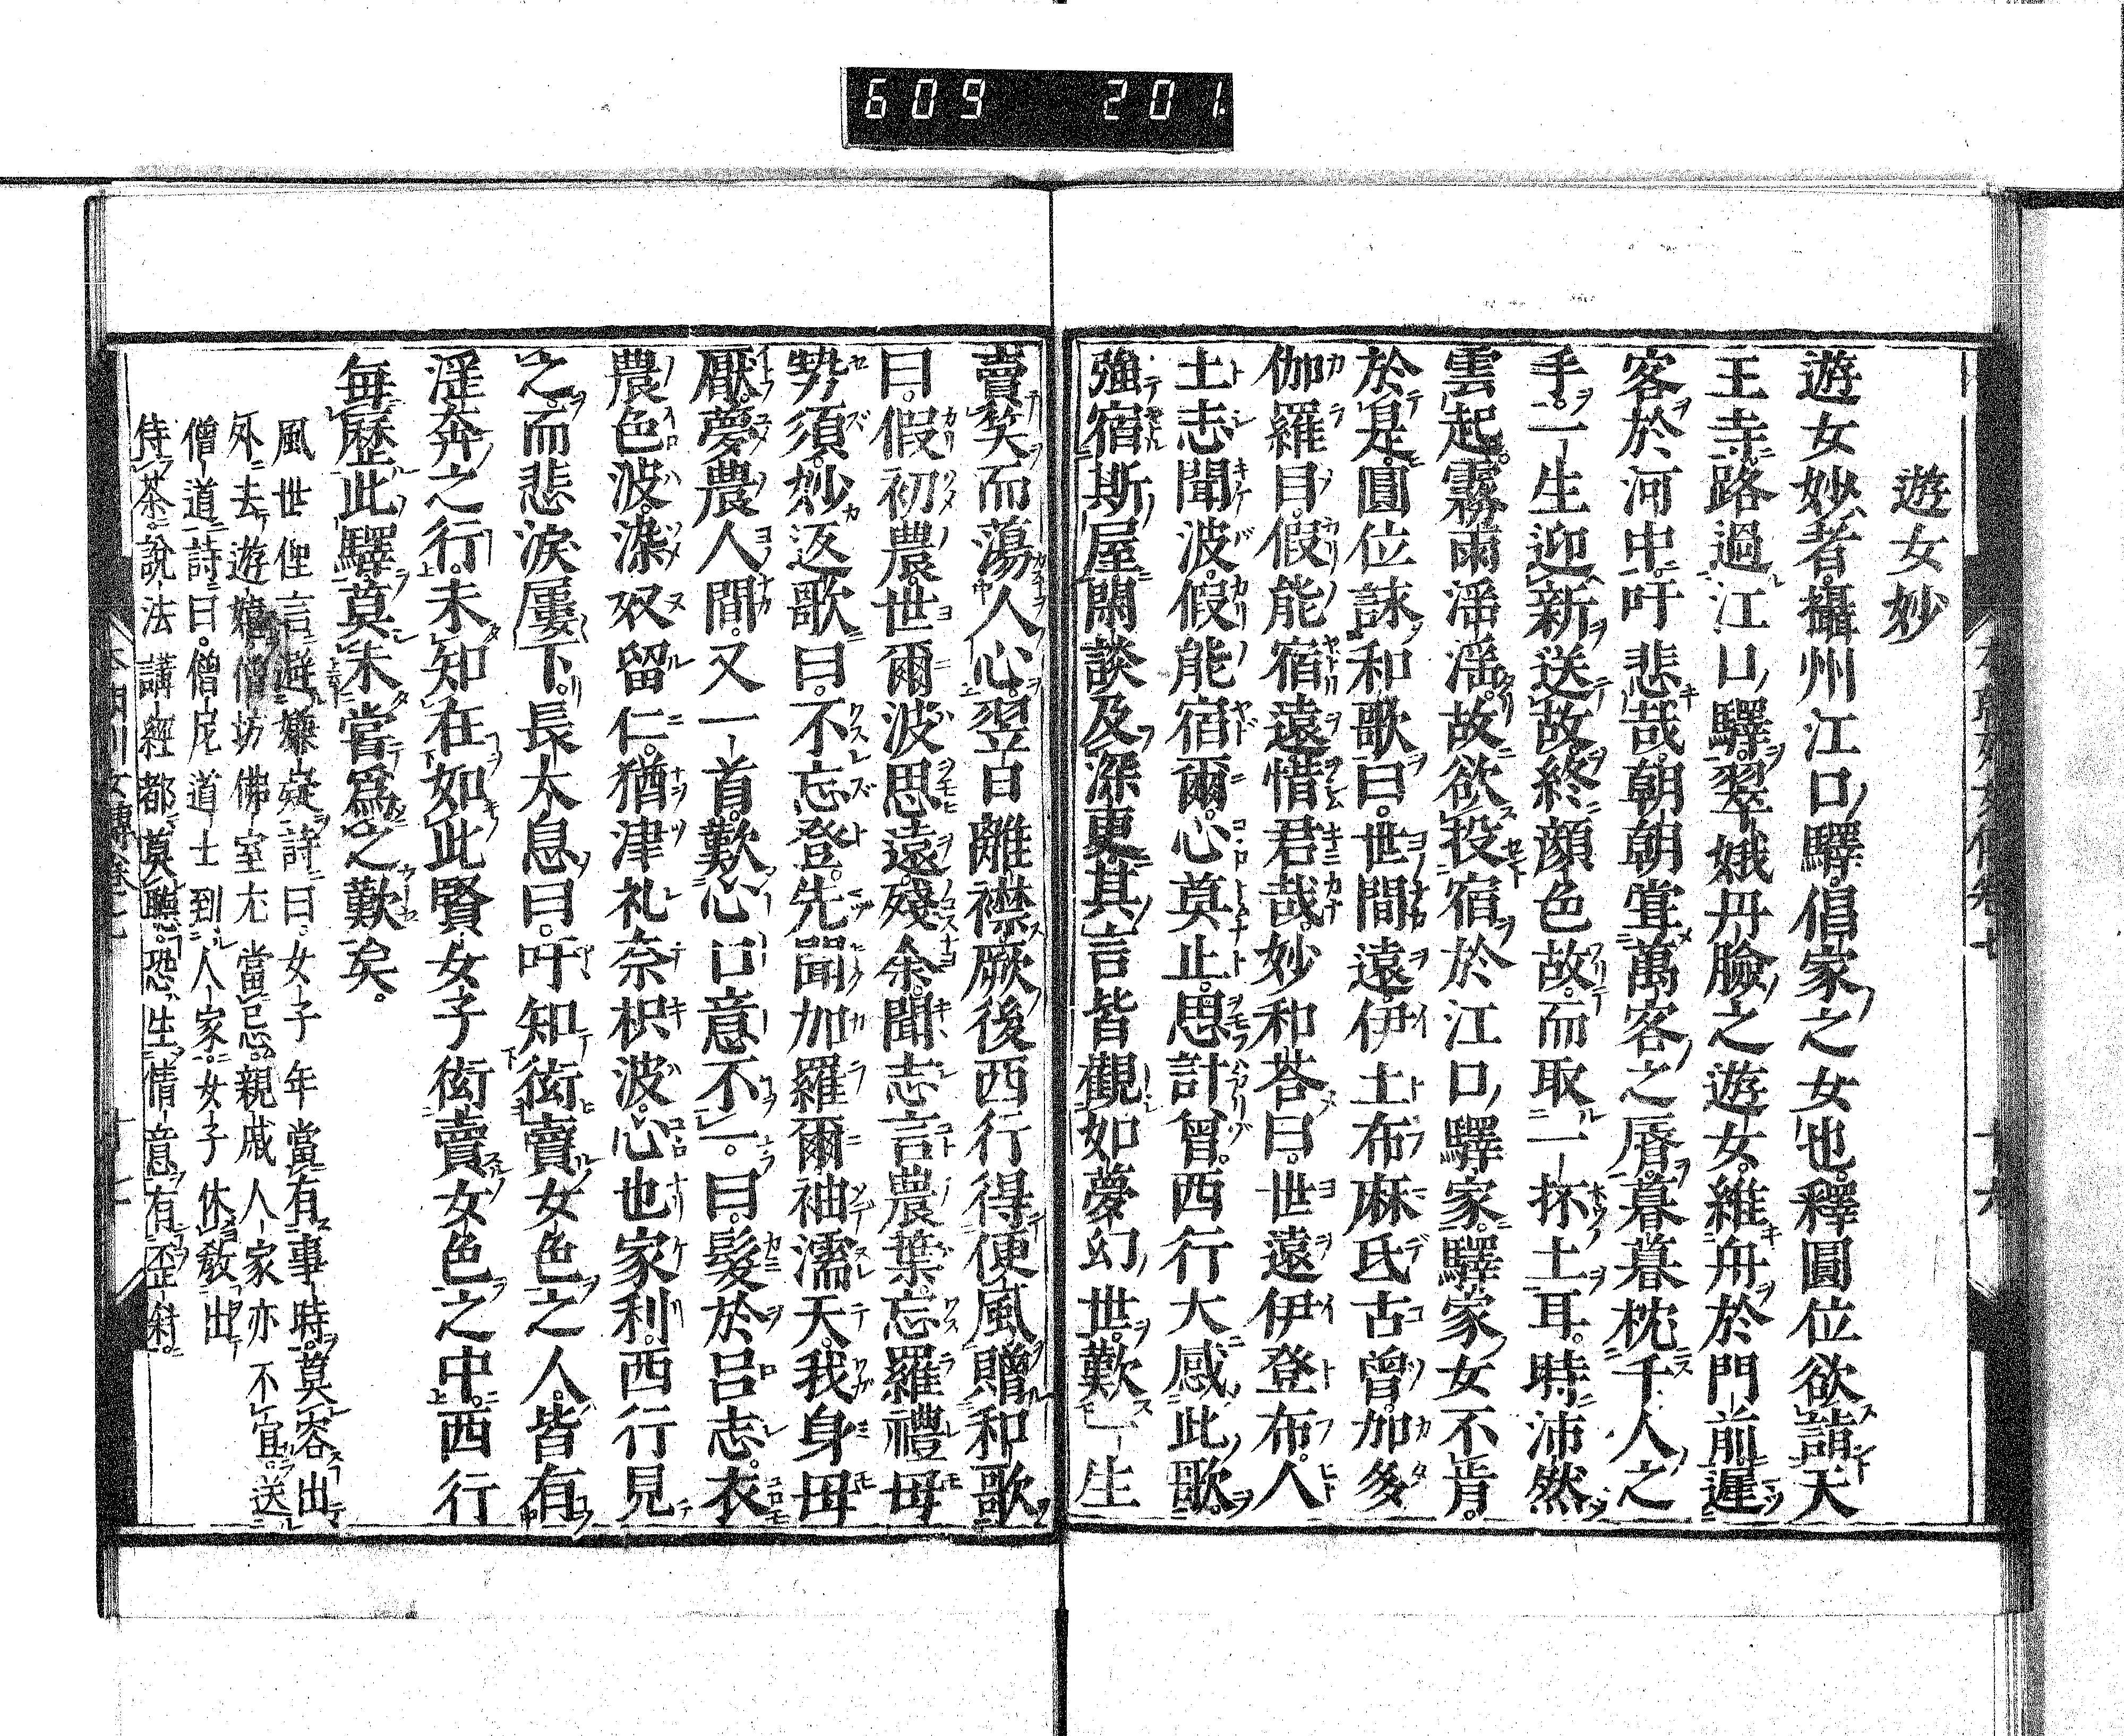 609 201
遊女妙
遊女妙者。攝州江口驛。倡家之女也。釋圓位欲詣天
王寺。路過江口驛。翠娥丹臉之遊女。維舟於門前。遲
客於河中。吁悲哉。朝朝萬客之脣。暮暮枕千人之
手。一生迎新送故。終顔色故。而取一抔土耳。時沛然
雲起。霧雨滛滛。故欲投宿於江口驛家。驛家女不肯。
於是圓位詠和歌曰。世間遠。伊土布麻氐古曾。加多
伽羅目。假能宿遠。惜君哉。妙和荅曰。世遠伊登布。人
土志聞波。假能宿爾。心莫止。思計曾。西行大感此歌。
強宿斯屋。閑談及深更。其言皆觀如夢幻世。歎一生
賣笑而蕩人心。翌日離襟。厥後西行得便風贈和歌
曰。假初農。世爾波思遠。殘余。聞志言農葉。忘羅禮毋
勢須。妙返歌曰。不忘登。先聞加羅爾。袖濡天。我身毋
厭。夢農人間。又一首。歎心口意不一。曰。髮於呂志。衣
農色波。染奴留仁。猶津礼奈枳波。心也家利。西行見
之。而悲淚屢下。長太息曰。吁知衒賣女色之人。皆有
滛奔之行。未知在如此賢女子衒賣女色之中。西行
毎歷此驛。莫未當爲之歎矣。
風世俚言避嫌疑詩曰。女子年當有事時。莫容出
外去遊嬉。僧坊佛室尢當忌。親戚人家亦不宜。送
僧道詩曰。僧尼道士到人家。女子休敎出
侍茶。說法講經都莫聽。恐生情意有歪斜。